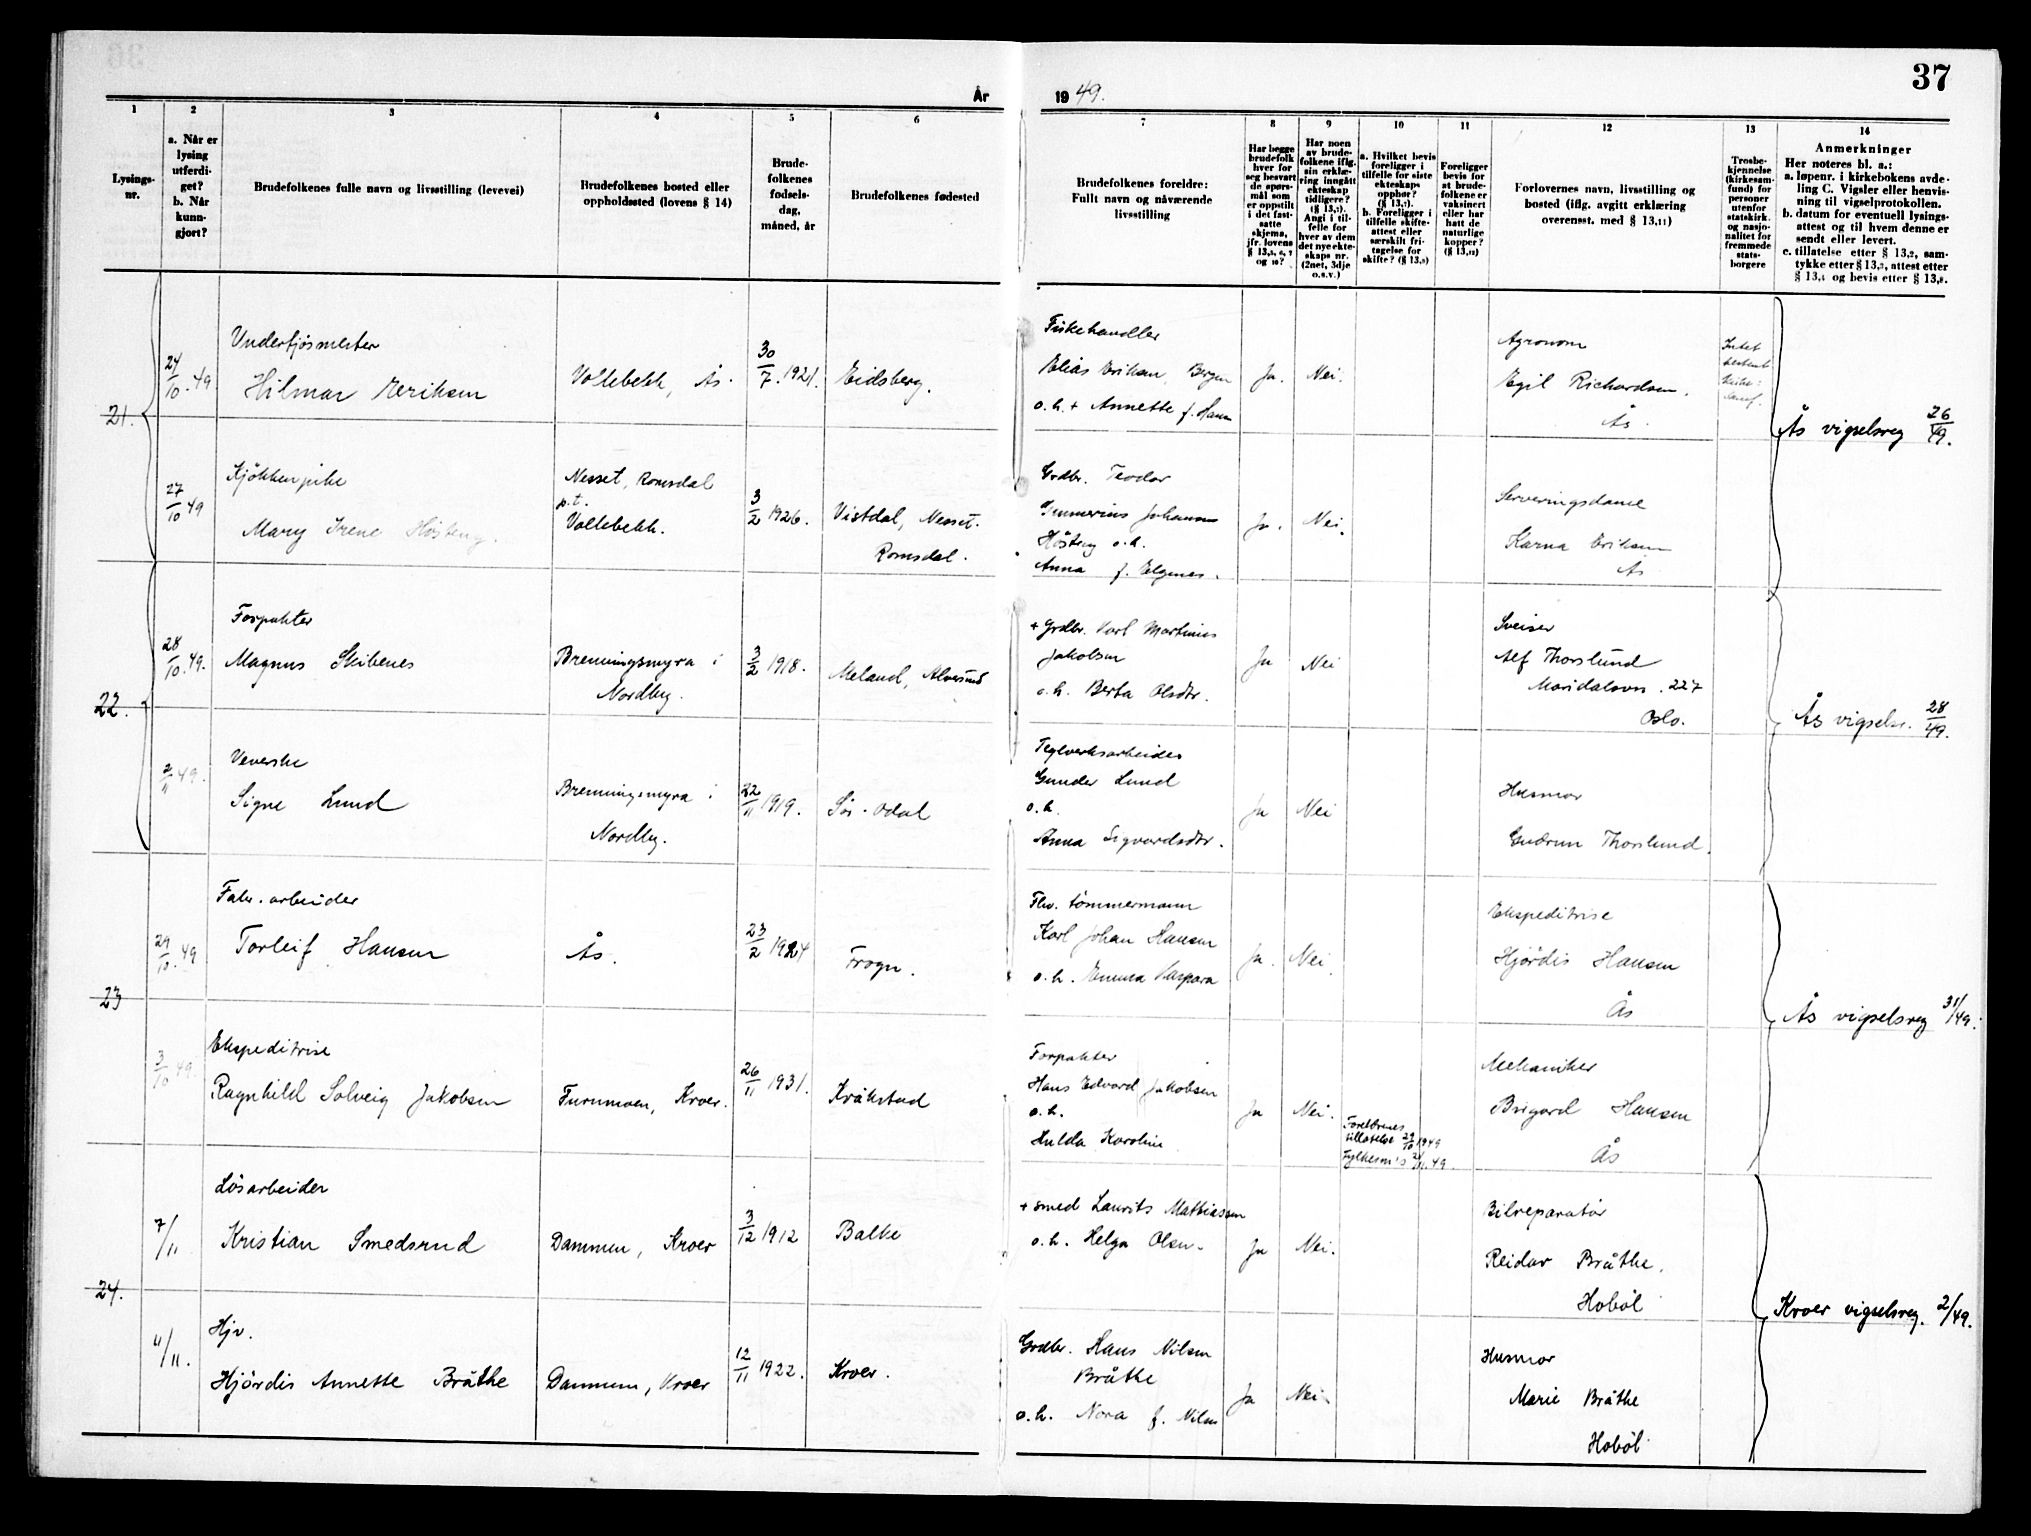 37
År
19 49.
1
2
3
4
5
6
7
8
9
10
11
12
13
14
Lysings-
nr.
a. Når er
lysing
utferdi-
get?
b. Når
kunn-
gjort?
Brudefolkenes fulle navn og livsstilling (levevei)
Brudefolkenes bosted eller
oppholdssted (lovens § 14)
Brude-
folkenes
fødsels-
dag,
måned, år
Brudefolkenes fødested
Brudefolkenes foreldre:
Fullt navn og nåværende
livsstilling
Har begge
brudefolk
hver for
seg besvart
de spørs-
mål som
er oppstilt
i det fast-
satte
skjema,
jfr. lovens
§ 13,5, 6, 7
og 10?
Har noen
av brude-
folkene iflg.
sin erklæ-
ring inngått
ekteskap
tidligere?
(§ 13,7).
Angi i til-
felle for
hver av dem
det nye ekte-
skaps nr.
(2net, 3dje
o.s.v.)
a. Hvilket bevis
foreligger i
tilfelle for siste
ekteskaps
opphør?
(§ 13,7).
b. Foreligger i
tilfelle skifte-
attest eller
særskilt fri-
tagelse for
skifte? (§ 13,9)
Foreligger
bevis for
at brude-
folkene er
vaksinert
eller har
hatt de
naturlige
kopper?
(§ 13,12)
Forlovernes navn, livsstilling og
bosted (iflg. avgitt erklæring
overensst. med § 13,11)
Trosbe-
kjennelse
(kirkesam-
fund) for
personer
utenfor
statskirk.
og nasjo-
nalitet for
fremmede
stats-
borgere
Anmerkninger
Her noteres bl. a.:
a. løpenr. i kirkebokens avde-
ling C. Vigsler eller henvis-
ning til vigselprotokollen.
b. datum for eventuell lysings-
attest og til hvem denne er
sendt eller levert.
c. tillatelse etter § 13,2, sam-
tykke etter § 13,3, attest etter
§ 13,4 og bevis etter § 13,8.
21.
24/10. 49
Underfjøsmester
Hilmar Eeriksen
Vollebekk, Ås.
30/7. 1921.
Eidsberg.
Fiskehandler
Elias Eriksen, Bergen
o.h. + Annette f. Hann
Ja.
Nei.
Agronom
Egil Richardsen.
Ås
Intet
bestemt
kirke-
samf.
Ås vigselsreg 26/49.
27/10 49
Kjøkkenpike
Mary Irene Høsteng.
Nesset, Romsdal
p.t.
Vollebekk.
3/2 1926.
Vistdal, Nesset.
Romsdal.
Grdbr. Teodor
Johannes
o.h.
Anna f. Elgenes.
Ja.
Nei.
Serveringsdame
Karna Eriksen
Ås
22.
28/10. 49.
Forpakter
Magnus Skibenes
Brenningsmyra i
Nordby.
3/2 1918.
Meland, Alversund
+ Grdbr. Karl Martinius
Jakobsen
o.h. Berta Olsdtr.
Ja
Nei
Sveiser
Alf Thorslund
Maridalsvn. 227
Oslo.
Ås vigsels. 28/49.
2/11 49.
Veverske
Signe Lund
Brenningsmyra i
Nordby.
22/11 1919.
Sør-Odal
Teglverksarbeider
Gunder Lund
o.h.
Anna Sigvardsdtr.
Ja
Nei
Husmor
Gudrun Thorslund.
23
29/10. 49
Fabr. arbeider
Torleif Hansen
Ås.
23/2 1924
Frogn.
Fhv. tømmermann
Karl Johan Hansen
o.h. Emma Kaspara
Ja.
Nei.
Ekspeditrise
Hjørdis Hansen
Ås
Ås vigselsreg 31/49.
3/10 49.
Ekspeditrise
Ragnhild Solveig Jakobsen
Furumoen, Kroer.
26/11 1931.
Kråkstad
Forpakter
Hans Edvard Jakobsen
o.h.
Hulda Karoline
Ja
Nei.
Foreldrenes
tillatelse 29/10 1949
Fylkesm's 2/11. 49.
Mekaniker
Brigard Hansen
Ås
24.
7/11
Løsarbeider
Kristian Smedsrud
Dammen, Kroer
3/12 1912
Balke
+ smed Laurits Mathiassen
o.h. Helga Olsen.
Ja
Nei.
Bilreparatør
Reidar Bråthe.
Hobøl
Kroer vigselsreg. 2/49.
11/11.
Hjv.
Hjørdis Annette Bråthe
Dammen, Kroer
12/11 1922.
Kroer.
Grdbr. Hans Nilsen
Bråthe
o.h. Nora f. Nilsen
Ja
Nei
Husmor
Marie Bråthe
Hobøl